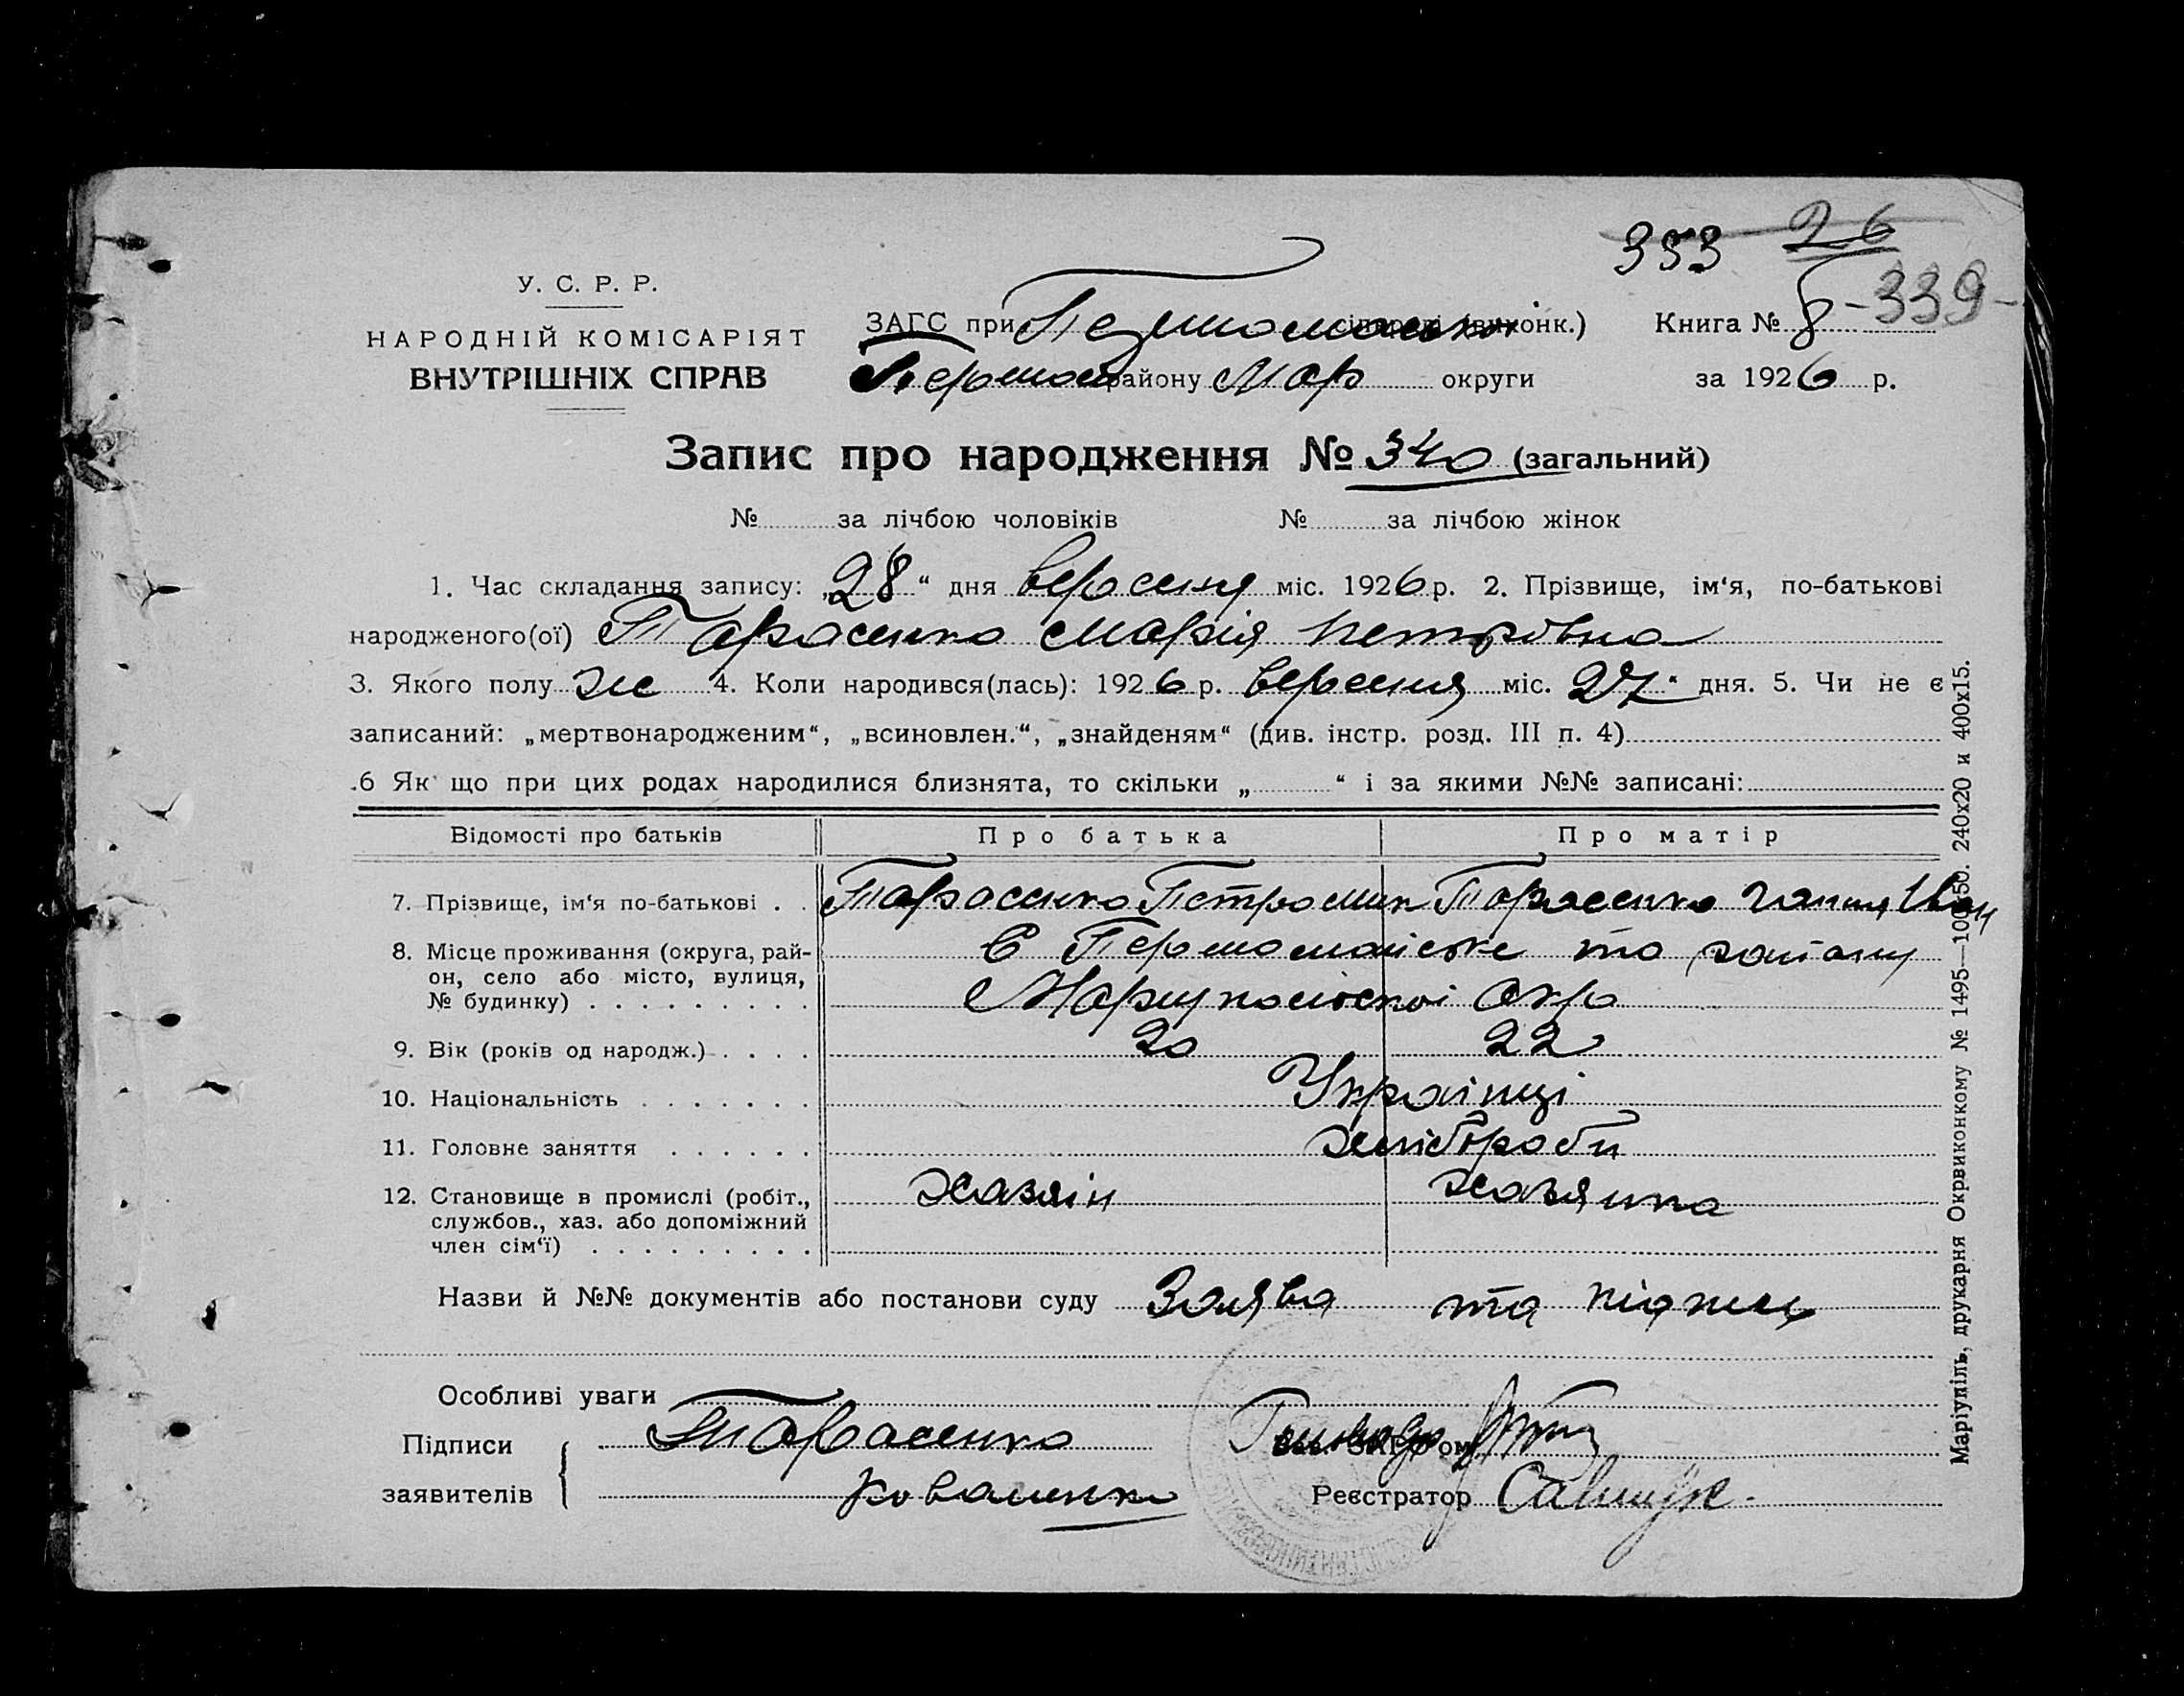 353 26
У. С. Р. Р.
НАРОДНІЙ КОМІСАРІЯТ
ВНУТРІШНІХ СПРАВ
ЗАГС при сільраді (виконк.) Книга № 8 -339-
Першом району Мар округи за 1926 р.
Запис про народження № 340 (загальний)
№ за лічбою чоловіків № за лічбою жінок
1. Час складання запису: „28“ дня вересня міс. 1926 р. 2. Прізвище, ім‘я, по-батькові
народженого(ої) Тарасенко Марія Петровна
3. Якого полу ж 4. Коли народився(лась): 1926 р. вересня міс. 27“ дня. 5. Чи не є
записаний: „мертвонародженим“, „всиновлен.“, „знайденям“ (див. інстр. розд. III п. 4)
.6 Як що при цих родах народилися близнята, то скільки „ “ і за якими №№ записані:
Відомості про батьків Про батька Про матір
7. Прізвище, ім‘я по-батькові . . Тарасенко Петро Мик Тарасенко Ганна Іван
8. Місце проживання (округа, рай-
он, село або місто, вулиця,
№ будинку) . . . . . . . . . С Першомайське та району
Маріупольскоі Окр
9. Вік (років од народж.) . . . . 20 22
10. Національність . . . . . . . Украінці
11. Головне заняття . . . . . . хлібороби
12. Становище в промислі (робіт.,
службов., хаз. або допоміжний
член сім‘ї) . . . . . . . . . хазяін хазяика
Назви й №№ документів або постанови суду Заява та підпис
Особливі уваги
Підписи
заявителів
Тарасенко
Коваленко
Реєстратор
Маріупіль, друкарня Окрвиконкому № 1495—10050. 240х20 и 400х15.